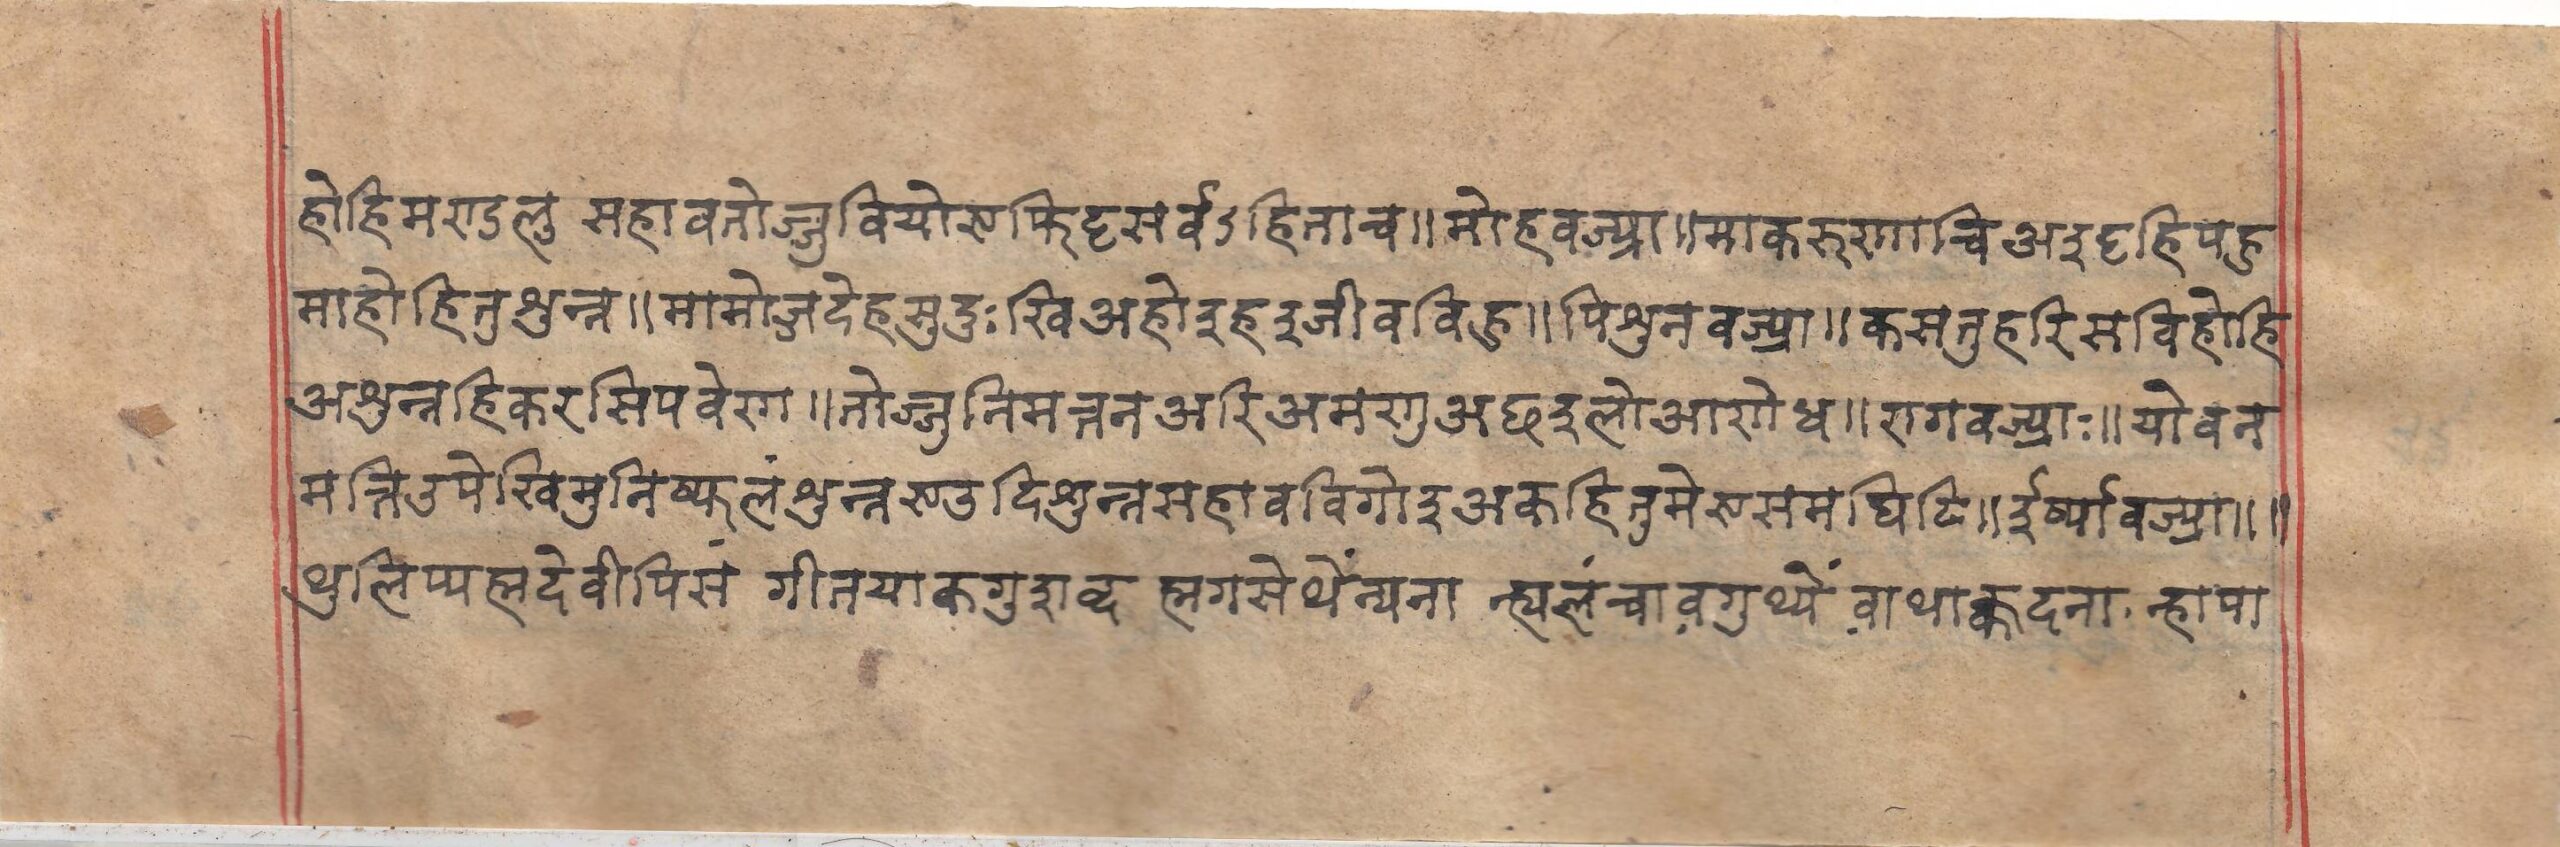 होहि मराऽलु सहावतोज्जुवियोरुफिट्टसर्वऽहिताच्व॥मोहवज्य्रा॥माकरुरणाच्विअइट्टहिपहु
माहोहितुशुन्न॥मामोजदेहसुदुःखिअहोइहइजीवविहु॥पिशुनवज्य्रा॥कसतुहरिसविहोहि
अशुन्नहिकरसिपवेरण॥तोज्जुनिमन्तनअरिअमणुअछइलोआणोध॥रागवज्य्राः॥योवन
मन्तिउपेखिमुनिष्फलंशुन्नरुउदिशुन्नसहावविगोइअकहितुमेरुसमघिटि॥ईर्ष्यावज्य्रा॥॥
थुलिप्यह्मदेवीपिसं गीतयाकगुइाव्द ह्मगसेथेंन्यना न्ह्यलंच्वाव़गुथ्यें व़ाथाक्कदना न्हापा